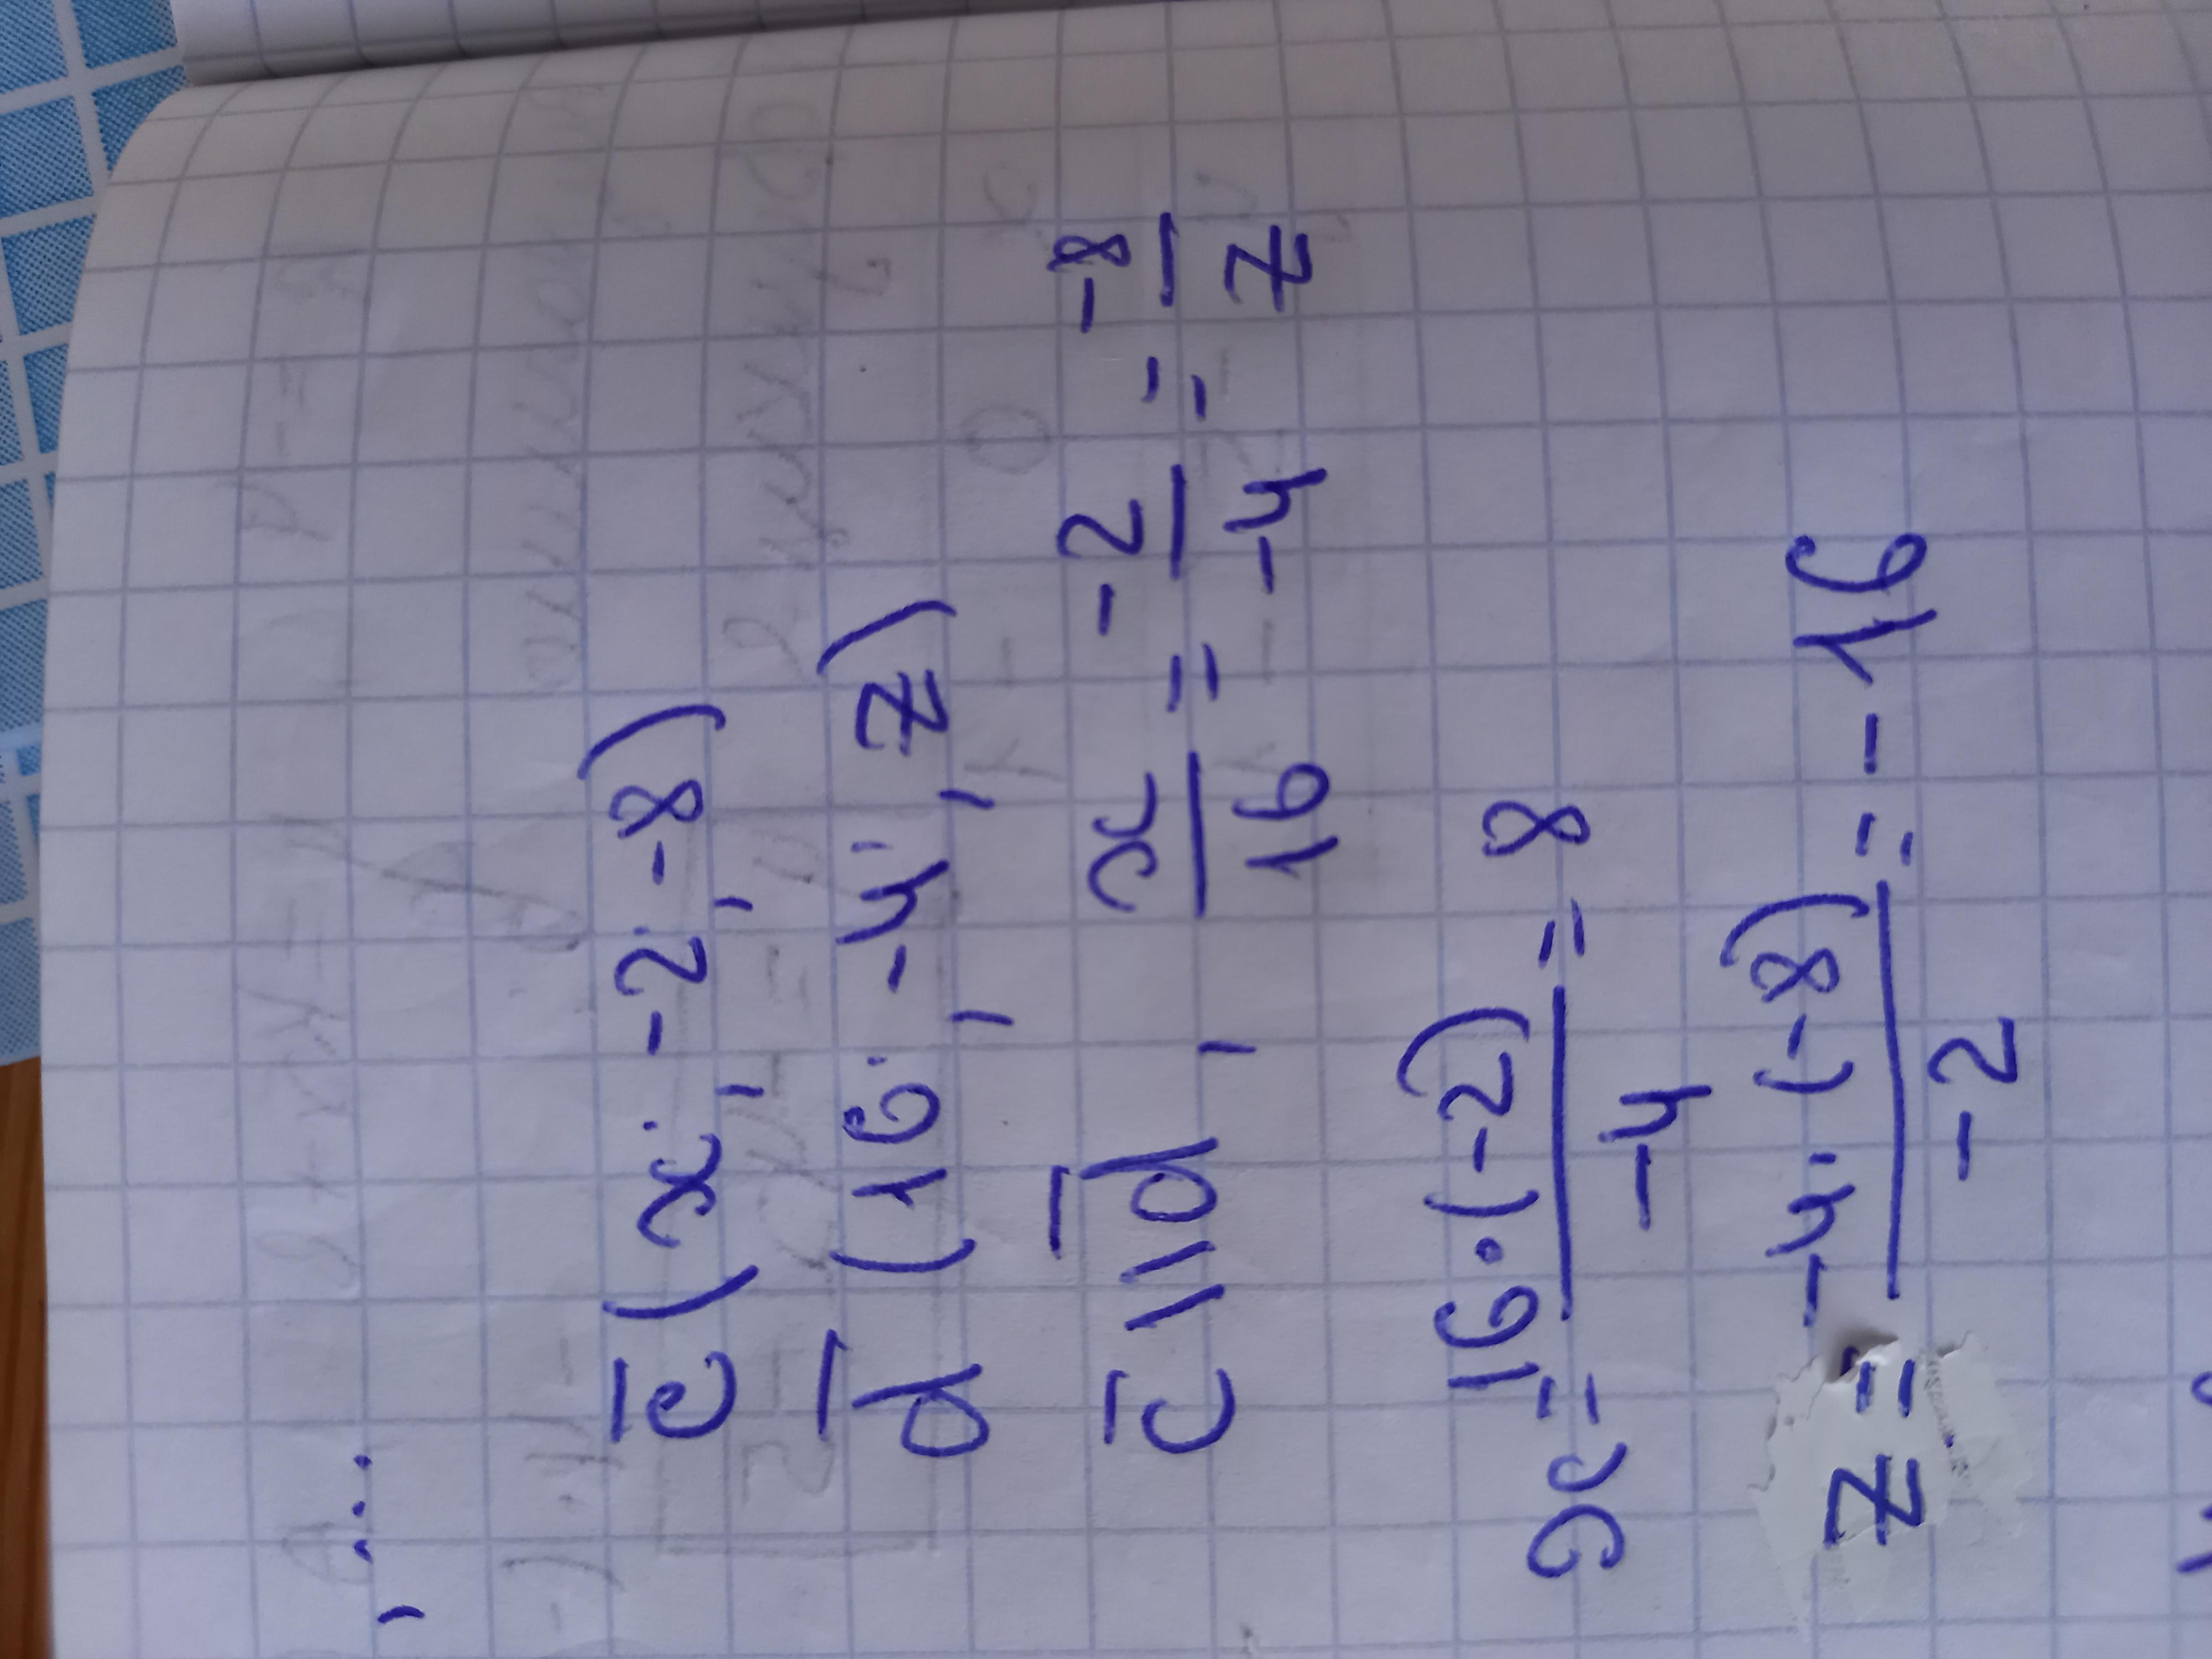 c̅ (x; -2; -8)
d̅ (16; -4; z)
c̅ || d̅, x/16 = -2/-4 = -8/z
x = 16·(-2)/-4 = 8
z = -4·(-8)/-2 = -16